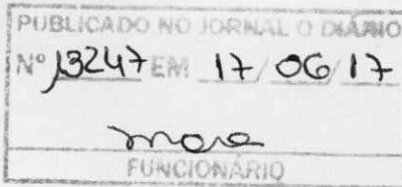 PUBLICADO NO JORNAL O DIÁRIO
Nº 13247 EM 17/06/17
FUNCIONÁRIO